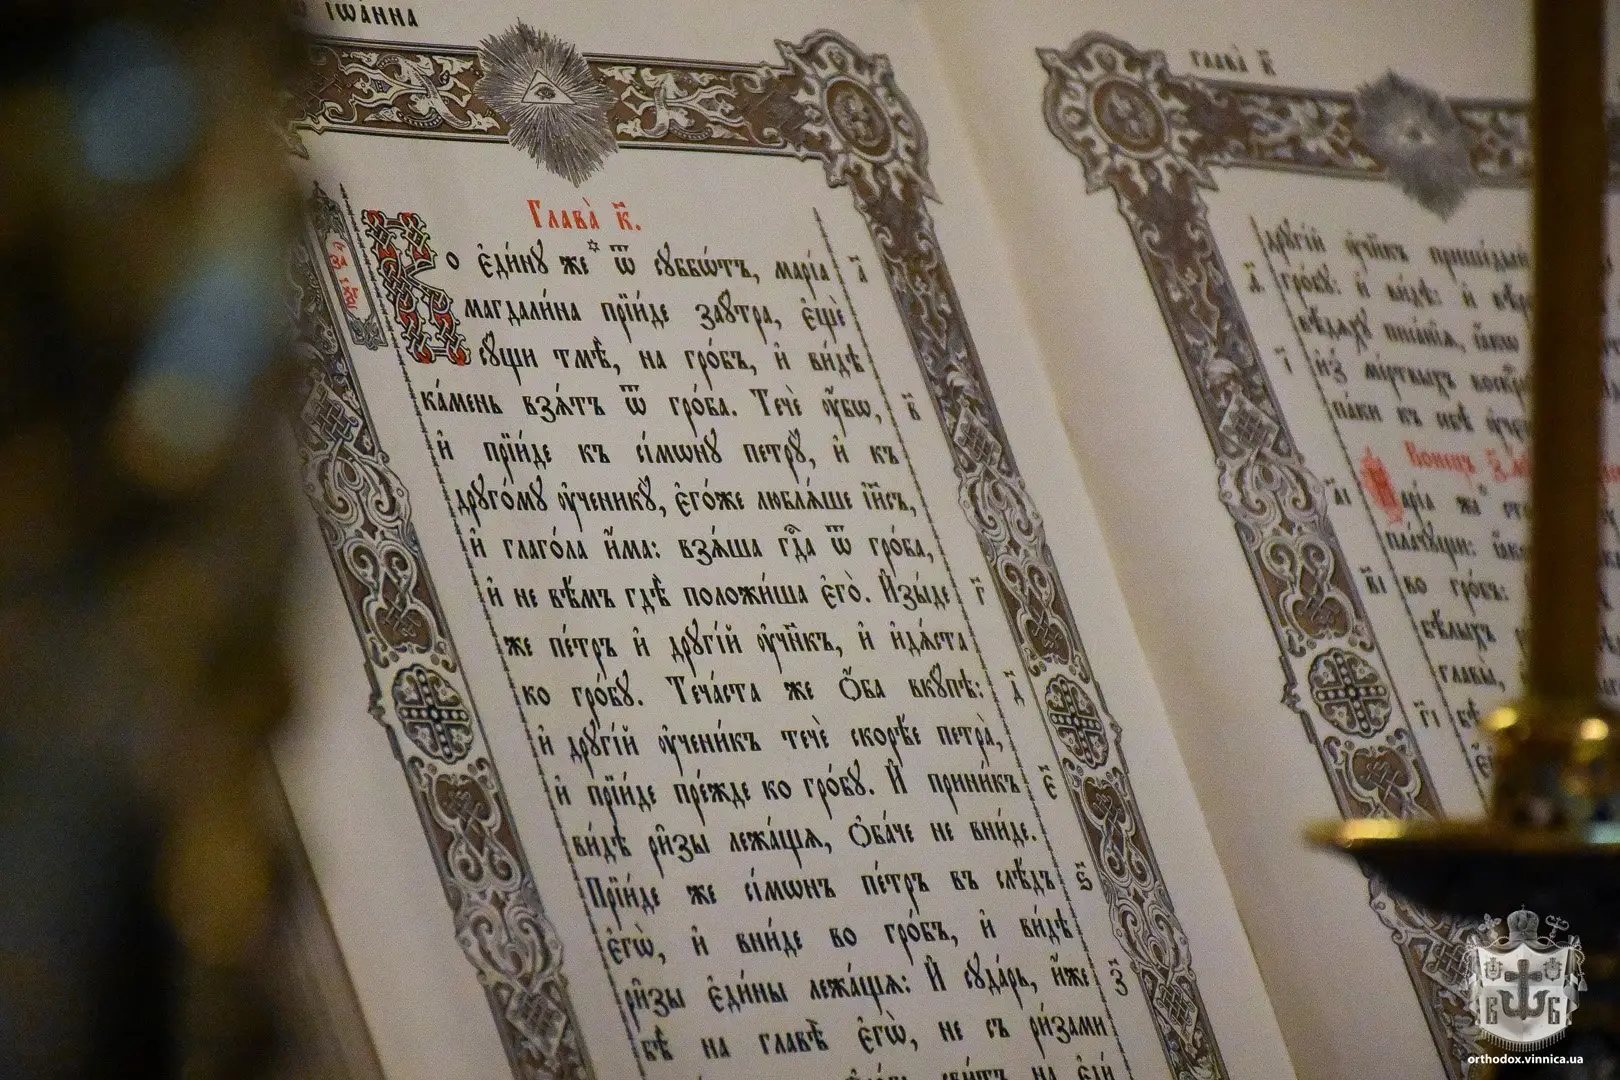 ІѠА́ННА
Глава̀ к҃.
Во є҆ди́нꙋ же ѿ сꙋббѡ́тъ, марі́а
а҃
магдали́на прїи́де заꙋ́тра, є҆щѐ
сꙋ́щи тмѣ̀, на гро́бъ, и҆ ви́дѣ
ка́мень взѧ́тъ ѿ гро́ба. Течѐ ᲂу҆̀бѡ,
в҃
и҆ прїи́де къ сі́мѡнꙋ петрꙋ̀, и҆ къ
дрꙋго́мꙋ ᲂу҆ченикꙋ̀, є҆го́же люблѧ́ше і҆и҃съ,
и҆ глаго́ла и҆́ма: взѧ́ша гдⷭ҇а ѿ гро́ба,
и҆ не вѣ́мъ гдѣ̀ положи́ша є҆го̀. И҆зы́де
г҃
же пе́тръ и҆ дрꙋгі́й ᲂу҆чн҃къ, и҆ и҆дѧ́ста
ко гро́бꙋ. Теча́ста же ѻ҆́ба вкꙋ́пѣ:
д҃
и҆ дрꙋгі́й ᲂу҆чени́къ течѐ скорѣ́е петра̀,
и҆ прїи́де пре́жде ко гро́бꙋ. И҆ прини́къ
є҃
ви́дѣ ри̑зы лежа́щѧ, ѻ҆ба́че не вни́де.
Прїи́де же сі́мѡнъ пе́тръ въ слѣ́дъ
ѕ҃
є҆гѡ̀, и҆ вни́де во гро́бъ, и҆ ви́дѣ
ри̑зы є҆ди́ны лежа́щѧ: И҆ сꙋда́рь, и҆́же
з҃
бѣ̀ на главѣ̀ є҆гѡ̀, не съ ри́зами
глава̀ к҃
дрꙋгі́й ᲂу҆чн҃къ
гро́бꙋ: и҆ ви́дѣ: и҆
и҆з̾ ме́ртвыхъ
па́ки къ себѣ̀
марі́а же
пла́чꙋщи:
а҃і
в҃і
во гро́бъ:
бѣ́лыхъ
главы̀,
г҃і
В Б
orthodox.vinnica.ua